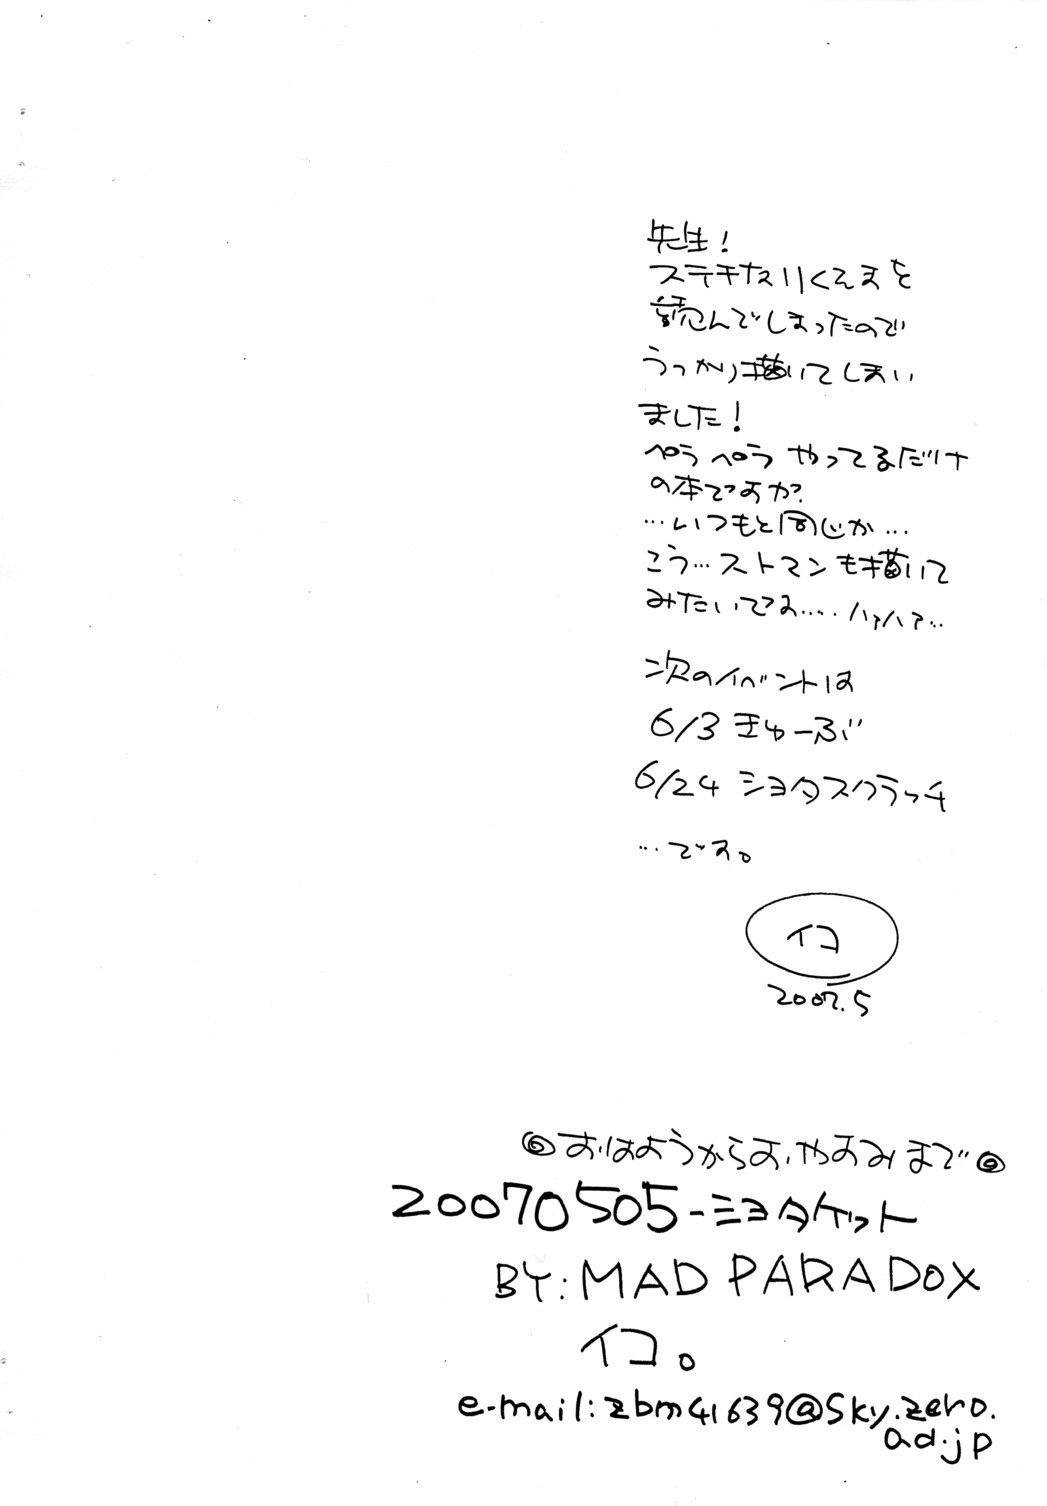 先生!
ステキなりくえまを
読んでしまったので
うっかり描いてしまい
ました!
ペラペラやってるだけ
の本ですが?
…いつもと同じか…
こう…ストマンも描いて
みたいです…..ハァハァ…
次のイベントは
6/3 きゅーぶ
6/24 ショタスクラッチ
…です。
イコ
2007.5
◎おはようからおやすみまで◎
20070505-ショタケット
BY:MAD PARADOX
イコ。
e-mail:zbm41639@sky.zero.
ad.jp